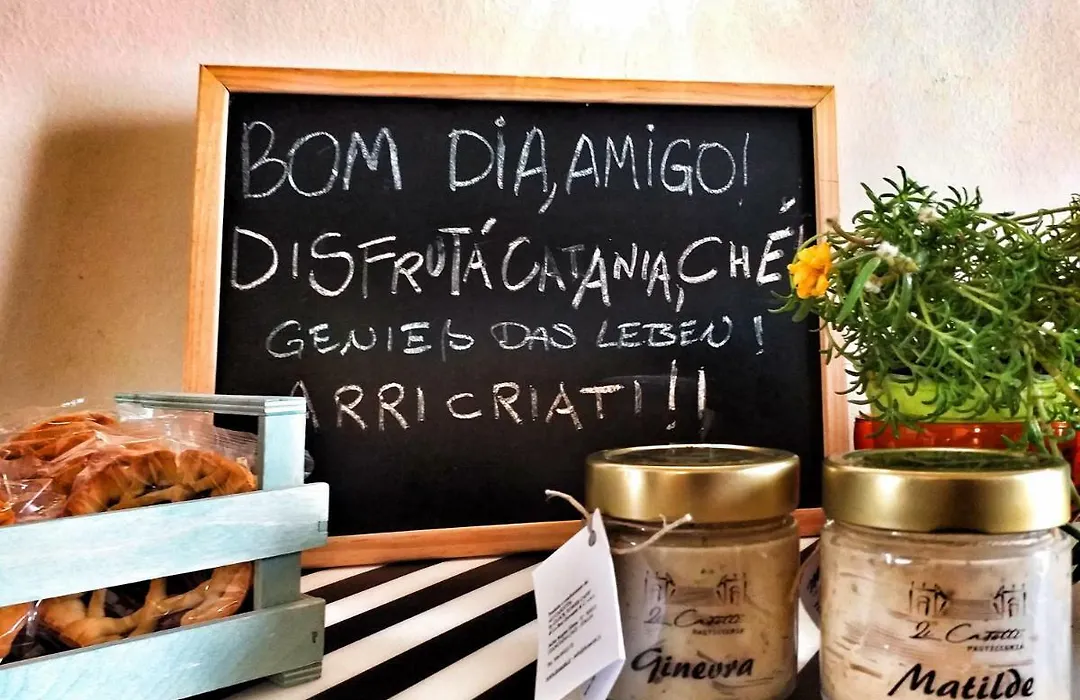 BOM DIA, AMIGO!
DISFRUTÁ CATANIA, CHÉ!
GENIEß DAS LEBEN!
ARRICRIATI!!
PASTICCERIA
Ginevra
PASTICCERIA
Matilde